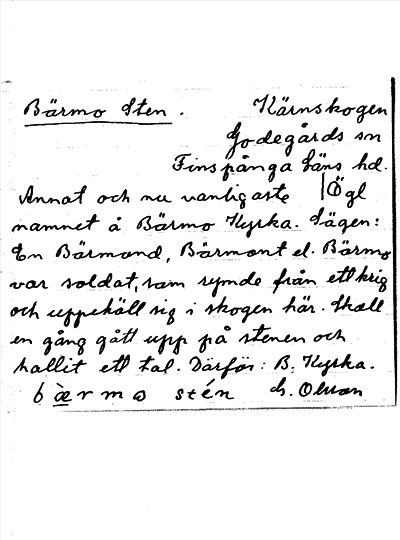 Bärmo Sten. Kärnskogen
Godegårds sn
Finspånga läns hd.
Annat och nu vanligaste Ögl
namnet å Bärmo Kyrka. Sägen:
En Bärmand, Bärmont el. Bärmo
var soldat, som rymde från ett krig
och uppehöll sig i skogen här. Skall
en gång gått upp på stenen och
hallit ett tal. Därför: B. Kyrka.
bæ̀rmɷ stén G. Olsson